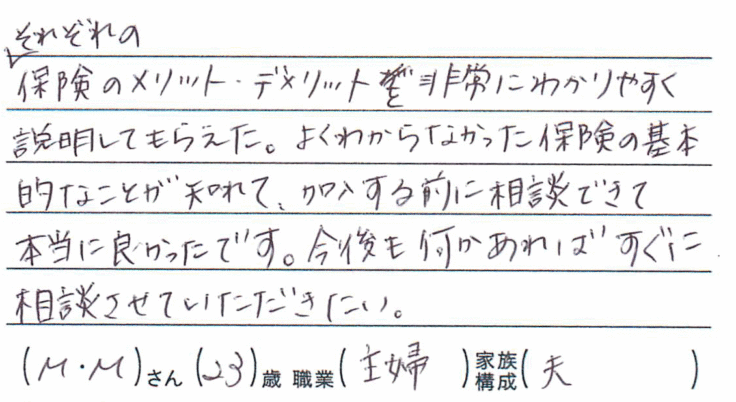 それぞれの
保険のメリット・デメリットを非常にわかりやすく
説明してもらえた。よくわからなかった保険の基本
的なことが知れて、加入する前に相談できて
本当に良かったです。今後も何かあればすぐに
相談させていただきたい。
(M・M)さん(23)歳 職業(主婦)家族構成(夫)